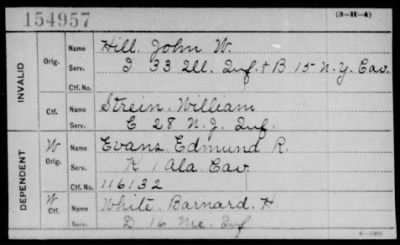 154957
(3-H-4)
INVALID
Orig.
Name Hill, John W.
Serv. I 33 Ill. Inf. + B 15 N.Y. Cav.
Ctf. No.
Ctf.
Name Strein, William
Serv. C 28 N.J. Inf.
DEPENDENT
W Orig.
Name Evans, Edmund R.
Serv. K 1 Ala Cav.
Ctf. No. 116132
W Ctf.
Name White, Barnard H
Serv. D 16 Me. Inf